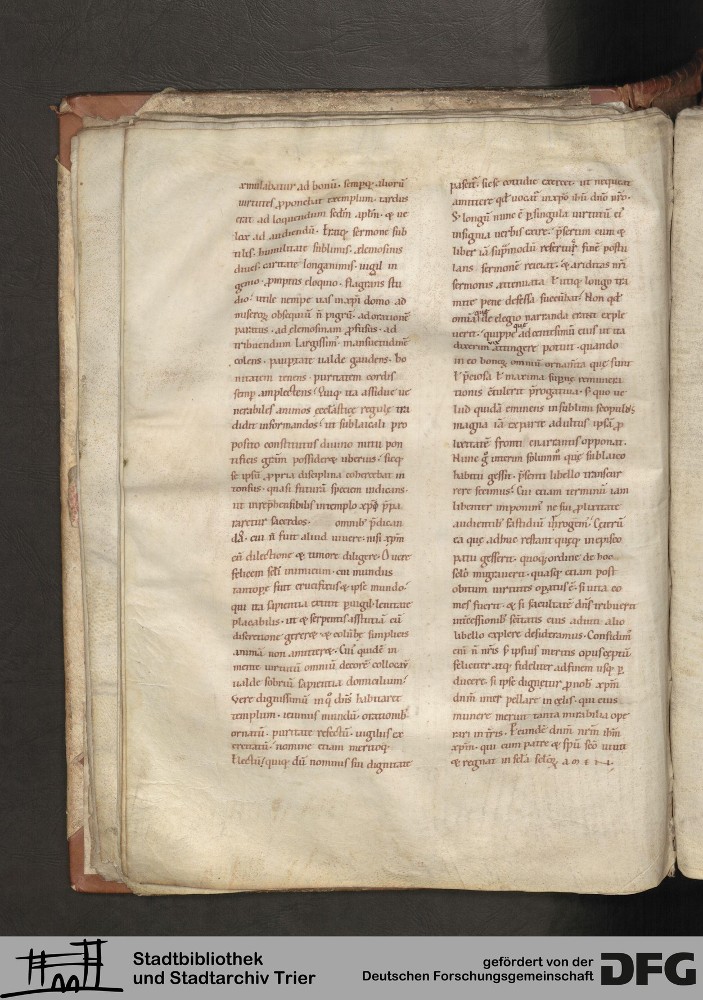 ximulabatur ad bonū. semꝑq; alioru
uirtutes ꝓponebat exemplum. tardus
erat ad loquendum scdm aplm. & ue
lox ad audiendū. Eratq; sermone sub
tiles. humilitate sublimis. elemosinis
diues. caritate longanimis. uigil in
genio. ꝓmptus eloquio. flagrans stu
dio. utile nempe uas in xp̄i domo ad
misericordię obsequiū n̄ pigrū. ad orationē
paratus. ad elemosinam ꝓfusus. ad
tribuendum largissim' mansuetudinē
colens. paupertate ualde gaudens. bo
nitatem tenens. puritatem cordis
semp amplectens. Quiq; ita assidue ue
nerabiles animos ecclasticę regulę tra
didit informandos. ut sublaicali pro
posito constitutus diuino nutu pon
tificis gr̄am possideret uberius. sicq;
se ipsū ꝓpria disciplina cohercebat in
tonsus. quasi futurā speciem indicans.
ut inreprehensibilis in templo xp̄o p̄pa
raretur sacerdos. omnib' p̄dican
dꝰ. cui n̄ fuit aliud uiuere. nisi xp̄m
cū dilectione & timore diligere. O uere
felicem seli inimicum. cui mundus
tantoꝑe fuit crucifixus & ipse mundo.
qui ita sapientia extitit ꝑuigil. lenitate
placabilis. ut & serpentis astutiā cū
discretione gereret & colūbę simplicis
animā non amitteret. Cui' quidē in
mente uirtutū omniū decorē collocauit
ualde sobriū sapientia domicilium.
Vere dignissimū in quo dn̄s habitaret
templum. ieiuniis mundū. orationib'
ornatū. puritate refectū. uigiliis ex
ercitatū. nomine etiam meritoq;
Electū. quiq; dū nominis sui dignitate
pasceret. sicse cottidie exercet. ut nequeat
amittere qđ uocatur in xp̄o ihū dn̄o nr̄o.
S; longū nunc ē ꝑ singula uirtutū ei'
insignia uerbis exire. p̄sertim cum &
liber iā supmodū refertur. finē postu
lans sermonē reiciat. & ariditas nr̄i
sermonis attenuata. & utiq; longo tra
mite pene defessa succūbat. Non qđ
omia que de elegio narranda erant exple
uerit. quippe que ad centesimū eius ut ita
dixerim attingere potuit. quando
in eo bonoꝝ omniū ornamta que sunt
& p̄ciosa & maxima supnę remunera
tionis cōtulerit p̄rogatiua. s; quo ue
lud quidā eminens in sublimi scopulus
magna iā ex parte adultus ipsā ꝓ
lixitatē fronti enarrantis opponat.
Nunc g̊ interim solumm̊ que sub laico
habitu gessit. p̄senti libello transcur
rere fecimus. Cui etiam terminū iam
libenter imponim' ne sui ꝓlixitate
audientib' fastidiū irrogem'. Ceterū
ea que adhuc restant queq; in episco
patu gesserit. quoq; ordine de hoc
selo migrauerit. quasq; etiam post
obitum uirtutes opatus ē. si uita co
mes fuerit. & si facultatē dn̄s tribuerit
int̄cessionib' sc̄itatis eius aditi. alio
libello explere desideramus. Confidim'
eni n̄ nr̄is s; ipsius meritis opus ceptū
feliciter atq; fideliter ad finem usq; ꝑ
ducere. si ipse dignetur ꝓ nob' xp̄m
dn̄m interpellare in celis. qui eius
munere meruit tanta mirabilia ope
rari in tris. Pcundē dn̄m nr̄m ihm̄
xp̄m. qui cum patre & sp̄u sc̄o uiuit
& regnat in sc̄la sc̄loꝝ. AMEN.
Stadtbibliothek
und Stadtarchiv Trier
gefördert von der
Deutschen Forschungsgemeinschaft
DFG